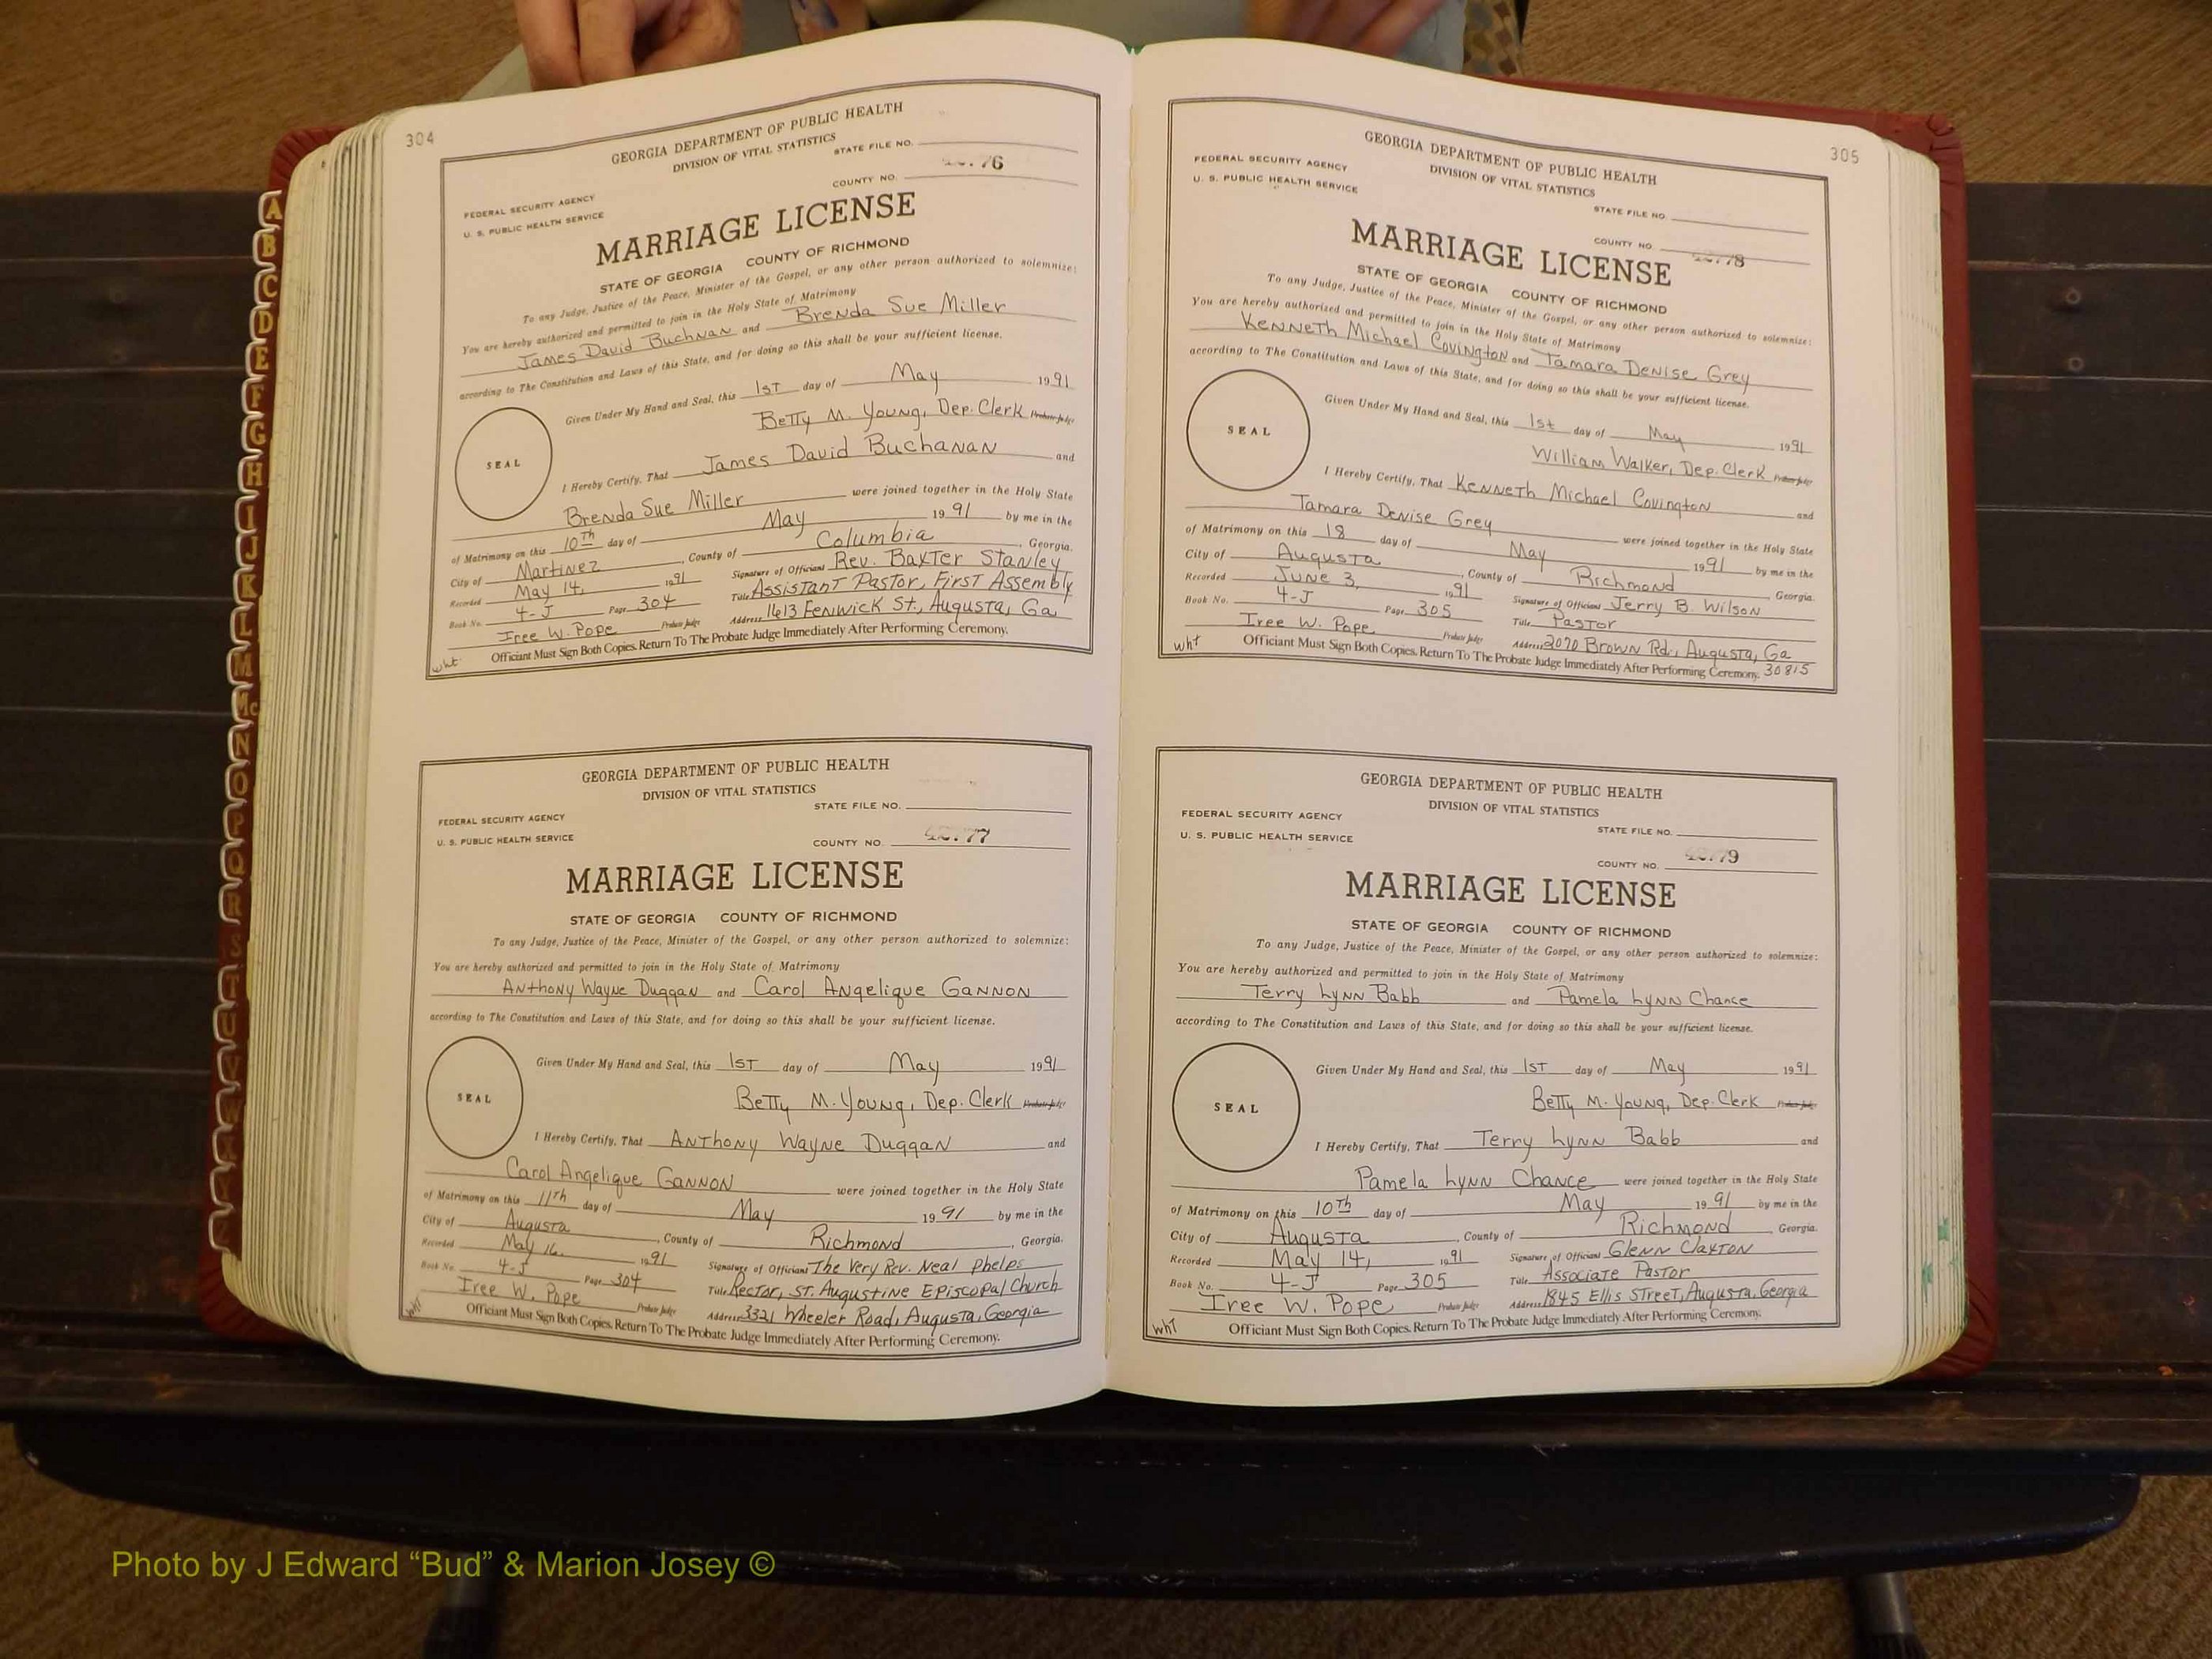 304
GEORGIA DEPARTMENT OF PUBLIC HEALTH
DIVISION OF VITAL STATISTICS
STATE FILE NO.
COUNTY NO. 76
FEDERAL SECURITY AGENCY
U. S. PUBLIC HEALTH SERVICE
MARRIAGE LICENSE
STATE OF GEORGIA COUNTY OF RICHMOND
To any Judge, Justice of the Peace, Minister of the Gospel, or any other person authorized to solemnize:
You are hereby authorized and permitted to join in the Holy State of Matrimony
James David Buchnan and Brenda Sue Miller
according to The Constitution and Laws of this State, and for doing so this shall be your sufficient license.
Given Under My Hand and Seal, this 1ST day of May 1991
Betty M. Young, Dep. Clerk Probate Judge
SEAL
I Hereby Certify, That James David Buchanan and
Brenda Sue Miller were joined together in the Holy State
of Matrimony on this 10Th day of May 1991 by me in the
City of Martinez, County of Columbia, Georgia.
Recorded May 14, 1991 Signature of Officiant Rev. Baxter Stanley
Book No. 4-J Page 304 Title Assistant Pastor, First Assembly
Iree W. Pope Probate Judge Address 1613 Fenwick St., Augusta, Ga
Officiant Must Sign Both Copies. Return To The Probate Judge Immediately After Performing Ceremony.
wht
GEORGIA DEPARTMENT OF PUBLIC HEALTH
DIVISION OF VITAL STATISTICS
STATE FILE NO.
FEDERAL SECURITY AGENCY
U. S. PUBLIC HEALTH SERVICE
COUNTY NO. 77
MARRIAGE LICENSE
STATE OF GEORGIA COUNTY OF RICHMOND
To any Judge, Justice of the Peace, Minister of the Gospel, or any other person authorized to solemnize:
You are hereby authorized and permitted to join in the Holy State of Matrimony
Anthony Wayne Duggan and Carol Angelique Gannon
according to The Constitution and Laws of this State, and for doing so this shall be your sufficient license.
Given Under My Hand and Seal, this 1ST day of May 1991
Betty M. Young, Dep. Clerk Probate Judge
SEAL
I Hereby Certify, That Anthony Wayne Duggan and
Carol Angelique Gannon were joined together in the Holy State
of Matrimony on this 11Th day of May 1991 by me in the
City of Augusta, County of Richmond, Georgia.
Recorded May 16, 1991 Signature of Officiant The Very Rev. Neal Phelps
Book No. 4-J Page 304 Title Rector, St. Augustine Episcopal Church
Iree W. Pope Probate Judge Address 3321 Wheeler Road, Augusta, Georgia
Officiant Must Sign Both Copies. Return To The Probate Judge Immediately After Performing Ceremony.
wht
305
GEORGIA DEPARTMENT OF PUBLIC HEALTH
DIVISION OF VITAL STATISTICS
FEDERAL SECURITY AGENCY
U. S. PUBLIC HEALTH SERVICE
STATE FILE NO.
COUNTY NO. 78
MARRIAGE LICENSE
STATE OF GEORGIA COUNTY OF RICHMOND
To any Judge, Justice of the Peace, Minister of the Gospel, or any other person authorized to solemnize:
You are hereby authorized and permitted to join in the Holy State of Matrimony
Kenneth Michael Covington and Tamara Denise Grey
according to The Constitution and Laws of this State, and for doing so this shall be your sufficient license.
Given Under My Hand and Seal, this 1st day of May 1991
William Walker, Dep. Clerk Probate Judge
SEAL
I Hereby Certify, That Kenneth Michael Covington and
Tamara Denise Grey were joined together in the Holy State
of Matrimony on this 18 day of May 1991 by me in the
City of Augusta, County of Richmond Georgia.
Recorded June 3, 1991 Signature of Officiant Jerry B. Wilson
Book No. 4-J Page 305 Title Pastor
Iree W. Pope Probate Judge Address 2070 Brown Rd., Augusta, Ga
Officiant Must Sign Both Copies. Return To The Probate Judge Immediately After Performing Ceremony. 30815
wht
GEORGIA DEPARTMENT OF PUBLIC HEALTH
DIVISION OF VITAL STATISTICS
FEDERAL SECURITY AGENCY
U. S. PUBLIC HEALTH SERVICE
STATE FILE NO.
COUNTY NO. 79
MARRIAGE LICENSE
STATE OF GEORGIA COUNTY OF RICHMOND
To any Judge, Justice of the Peace, Minister of the Gospel, or any other person authorized to solemnize:
You are hereby authorized and permitted to join in the Holy State of Matrimony
Terry Lynn Babb and Pamela Lynn Chance
according to The Constitution and Laws of this State, and for doing so this shall be your sufficient license.
Given Under My Hand and Seal, this 1ST day of May 1991
Betty M. Young, Dep. Clerk Probate Judge
SEAL
I Hereby Certify, That Terry Lynn Babb and
Pamela Lynn Chance were joined together in the Holy State
of Matrimony on this 10Th day of May 1991 by me in the
City of Augusta, County of Richmond, Georgia.
Recorded May 14, 1991 Signature of Officiant Glenn Clayton
Book No. 4-J Page 305 Title Associate Pastor
Iree W. Pope Probate Judge Address 1845 Ellis Street, Augusta, Georgia
Officiant Must Sign Both Copies. Return To The Probate Judge Immediately After Performing Ceremony.
wht
A
B
C
D
E
F
G
H
I
J
K
L
M
Mc
N
O
P
Q
R
S
T
U
V
W
Photo by J Edward “Bud” & Marion Josey ©